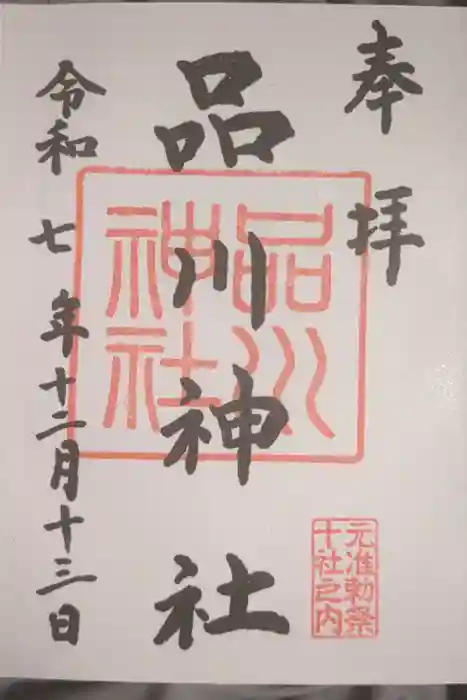 奉拝
品川神社
品川
神社
元准勅祭
十社之内
令和七年十二月十三日